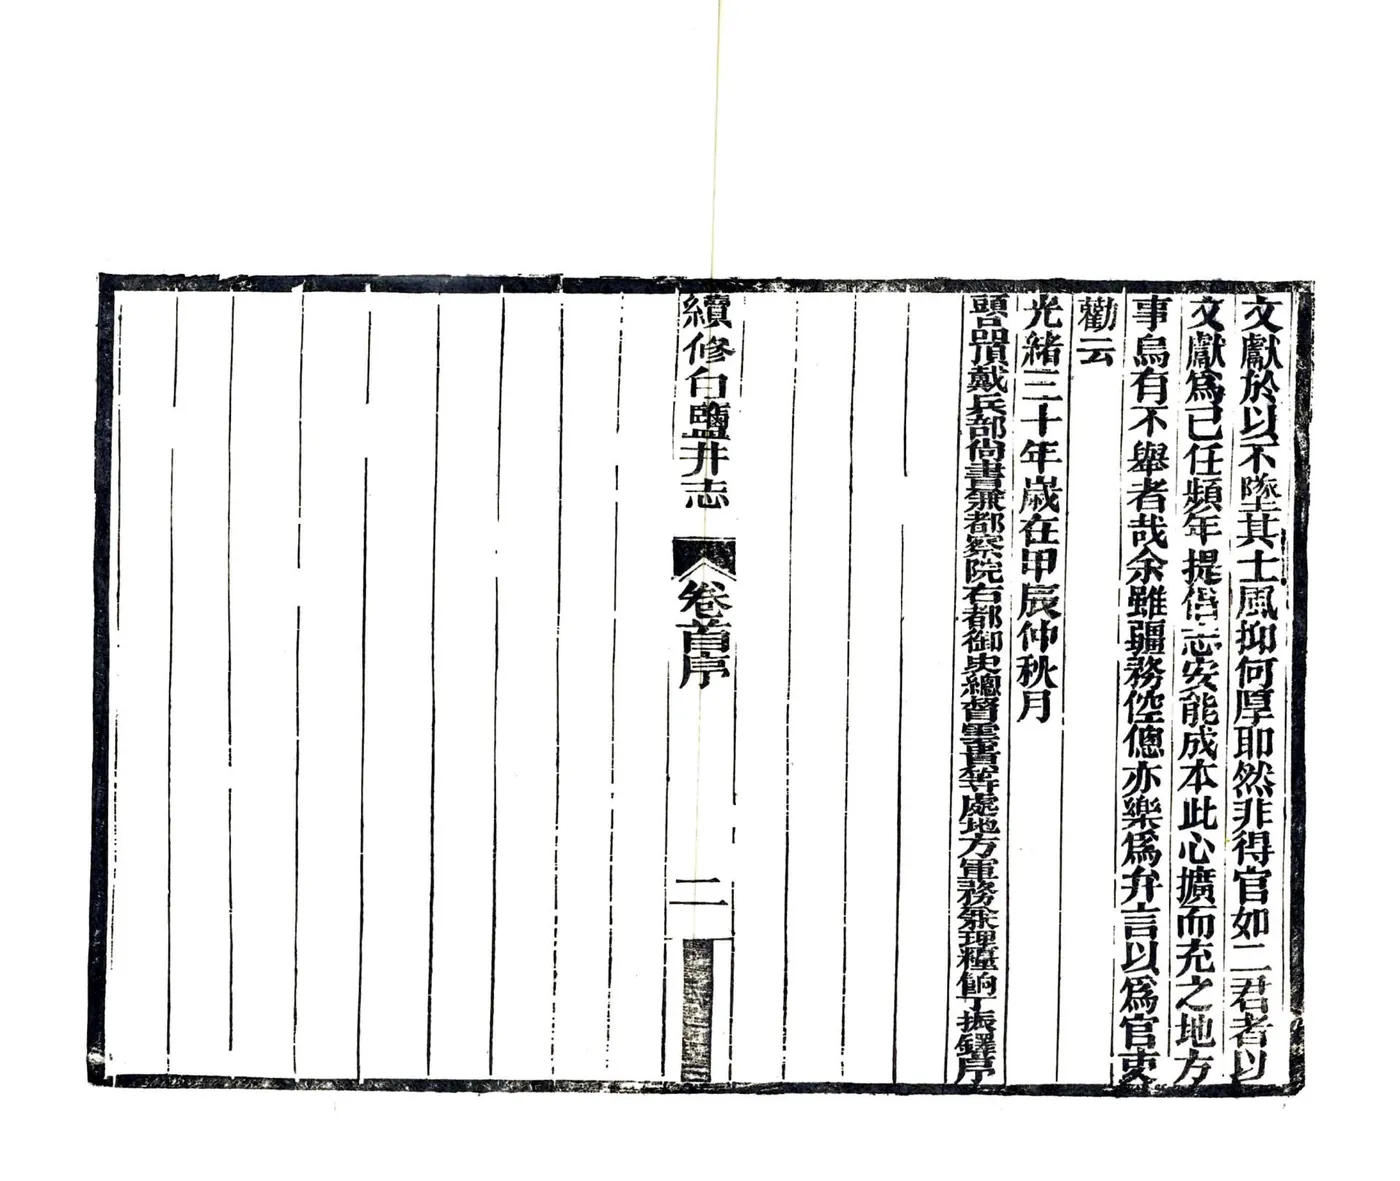 文獻於以不墜其士風抑何厚耶然非得官如二君者以
文獻爲己任頻年提倡志安能成本此心擴而充之地方
事烏有不舉者哉余雖疆務倥傯亦樂爲弁言以爲官吏
勸云
光緒三十年歲在甲辰仲秋月
頭品頂戴兵部尚書兼都察院右都御史總督雲貴等處地方軍務兼理糧餉丁振鐸序
續修白鹽井志
卷首序
二